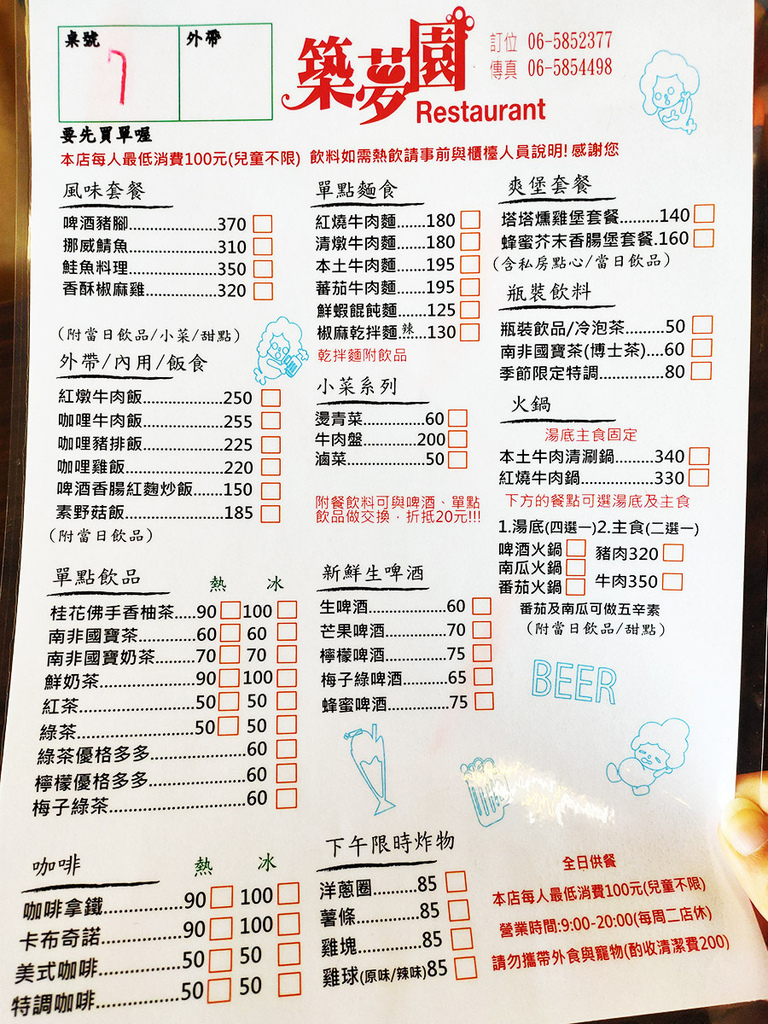 桌號
7
外帶
築夢園
Restaurant
訂位 06-5852377
傳真 06-5854498
要先買單喔
本店每人最低消費100元(兒童不限) 飲料如需熱飲請事前與櫃檯人員說明! 感謝您
風味套餐
啤酒豬腳....................370
挪威鯖魚....................310
鮭魚料理....................350
香酥椒麻雞................320
(附當日飲品/小菜/甜點)
外帶/內用/飯食
紅燉牛肉飯................250
咖哩牛肉飯................255
咖哩豬排飯................225
咖哩雞飯....................220
啤酒香腸紅麴炒飯.......150
素野菇飯....................185
(附當日飲品)
單點飲品
熱 冰
桂花佛手香柚茶.....90 100
南非國寶茶...........60 60
南非國寶奶茶........70 70
鮮奶茶.................90 100
紅茶.....................50 50
綠茶.....................50 50
綠茶優格多多.................60
檸檬優格多多.................60
梅子綠茶........................60
咖啡
熱 冰
咖啡拿鐵..............90 100
卡布奇諾..............90 100
美式咖啡..............50 50
特調咖啡..............50 50
單點麵食
紅燒牛肉麵.......180
清燉牛肉麵.......180
本土牛肉麵.......195
蕃茄牛肉麵.......195
鮮蝦餛飩麵.......125
椒麻乾拌麵 辣......130
乾拌麵附飲品
小菜系列
燙青菜................60
牛肉盤..............200
滷菜....................50
附餐飲料可與啤酒、單點
飲品做交換，折抵20元!!!
新鮮生啤酒
生啤酒....................60
芒果啤酒................70
檸檬啤酒................75
梅子綠啤酒............65
蜂蜜啤酒................75
下午限時炸物
洋蔥圈..........85
薯條..............85
雞塊..............85
雞球(原味/辣味)85
爽堡套餐
塔塔燻雞堡套餐.........140
蜂蜜芥末香腸堡套餐.160
(含私房點心/當日飲品)
瓶裝飲料
瓶裝飲品/冷泡茶.........50
南非國寶茶(博士茶)....60
季節限定特調..............80
火鍋
湯底主食固定
本土牛肉清涮鍋.........340
紅燒牛肉鍋................330
下方的餐點可選湯底及主食
1.湯底(四選一)2.主食(二選一)
啤酒火鍋 豬肉320
南瓜火鍋
番茄火鍋 牛肉350
番茄及南瓜可做五辛素
(附當日飲品/甜點)
BEER
全日供餐
本店每人最低消費100元(兒童不限)
營業時間:9:00-20:00(每周二店休)
請勿攜帶外食與寵物(酌收清潔費200)